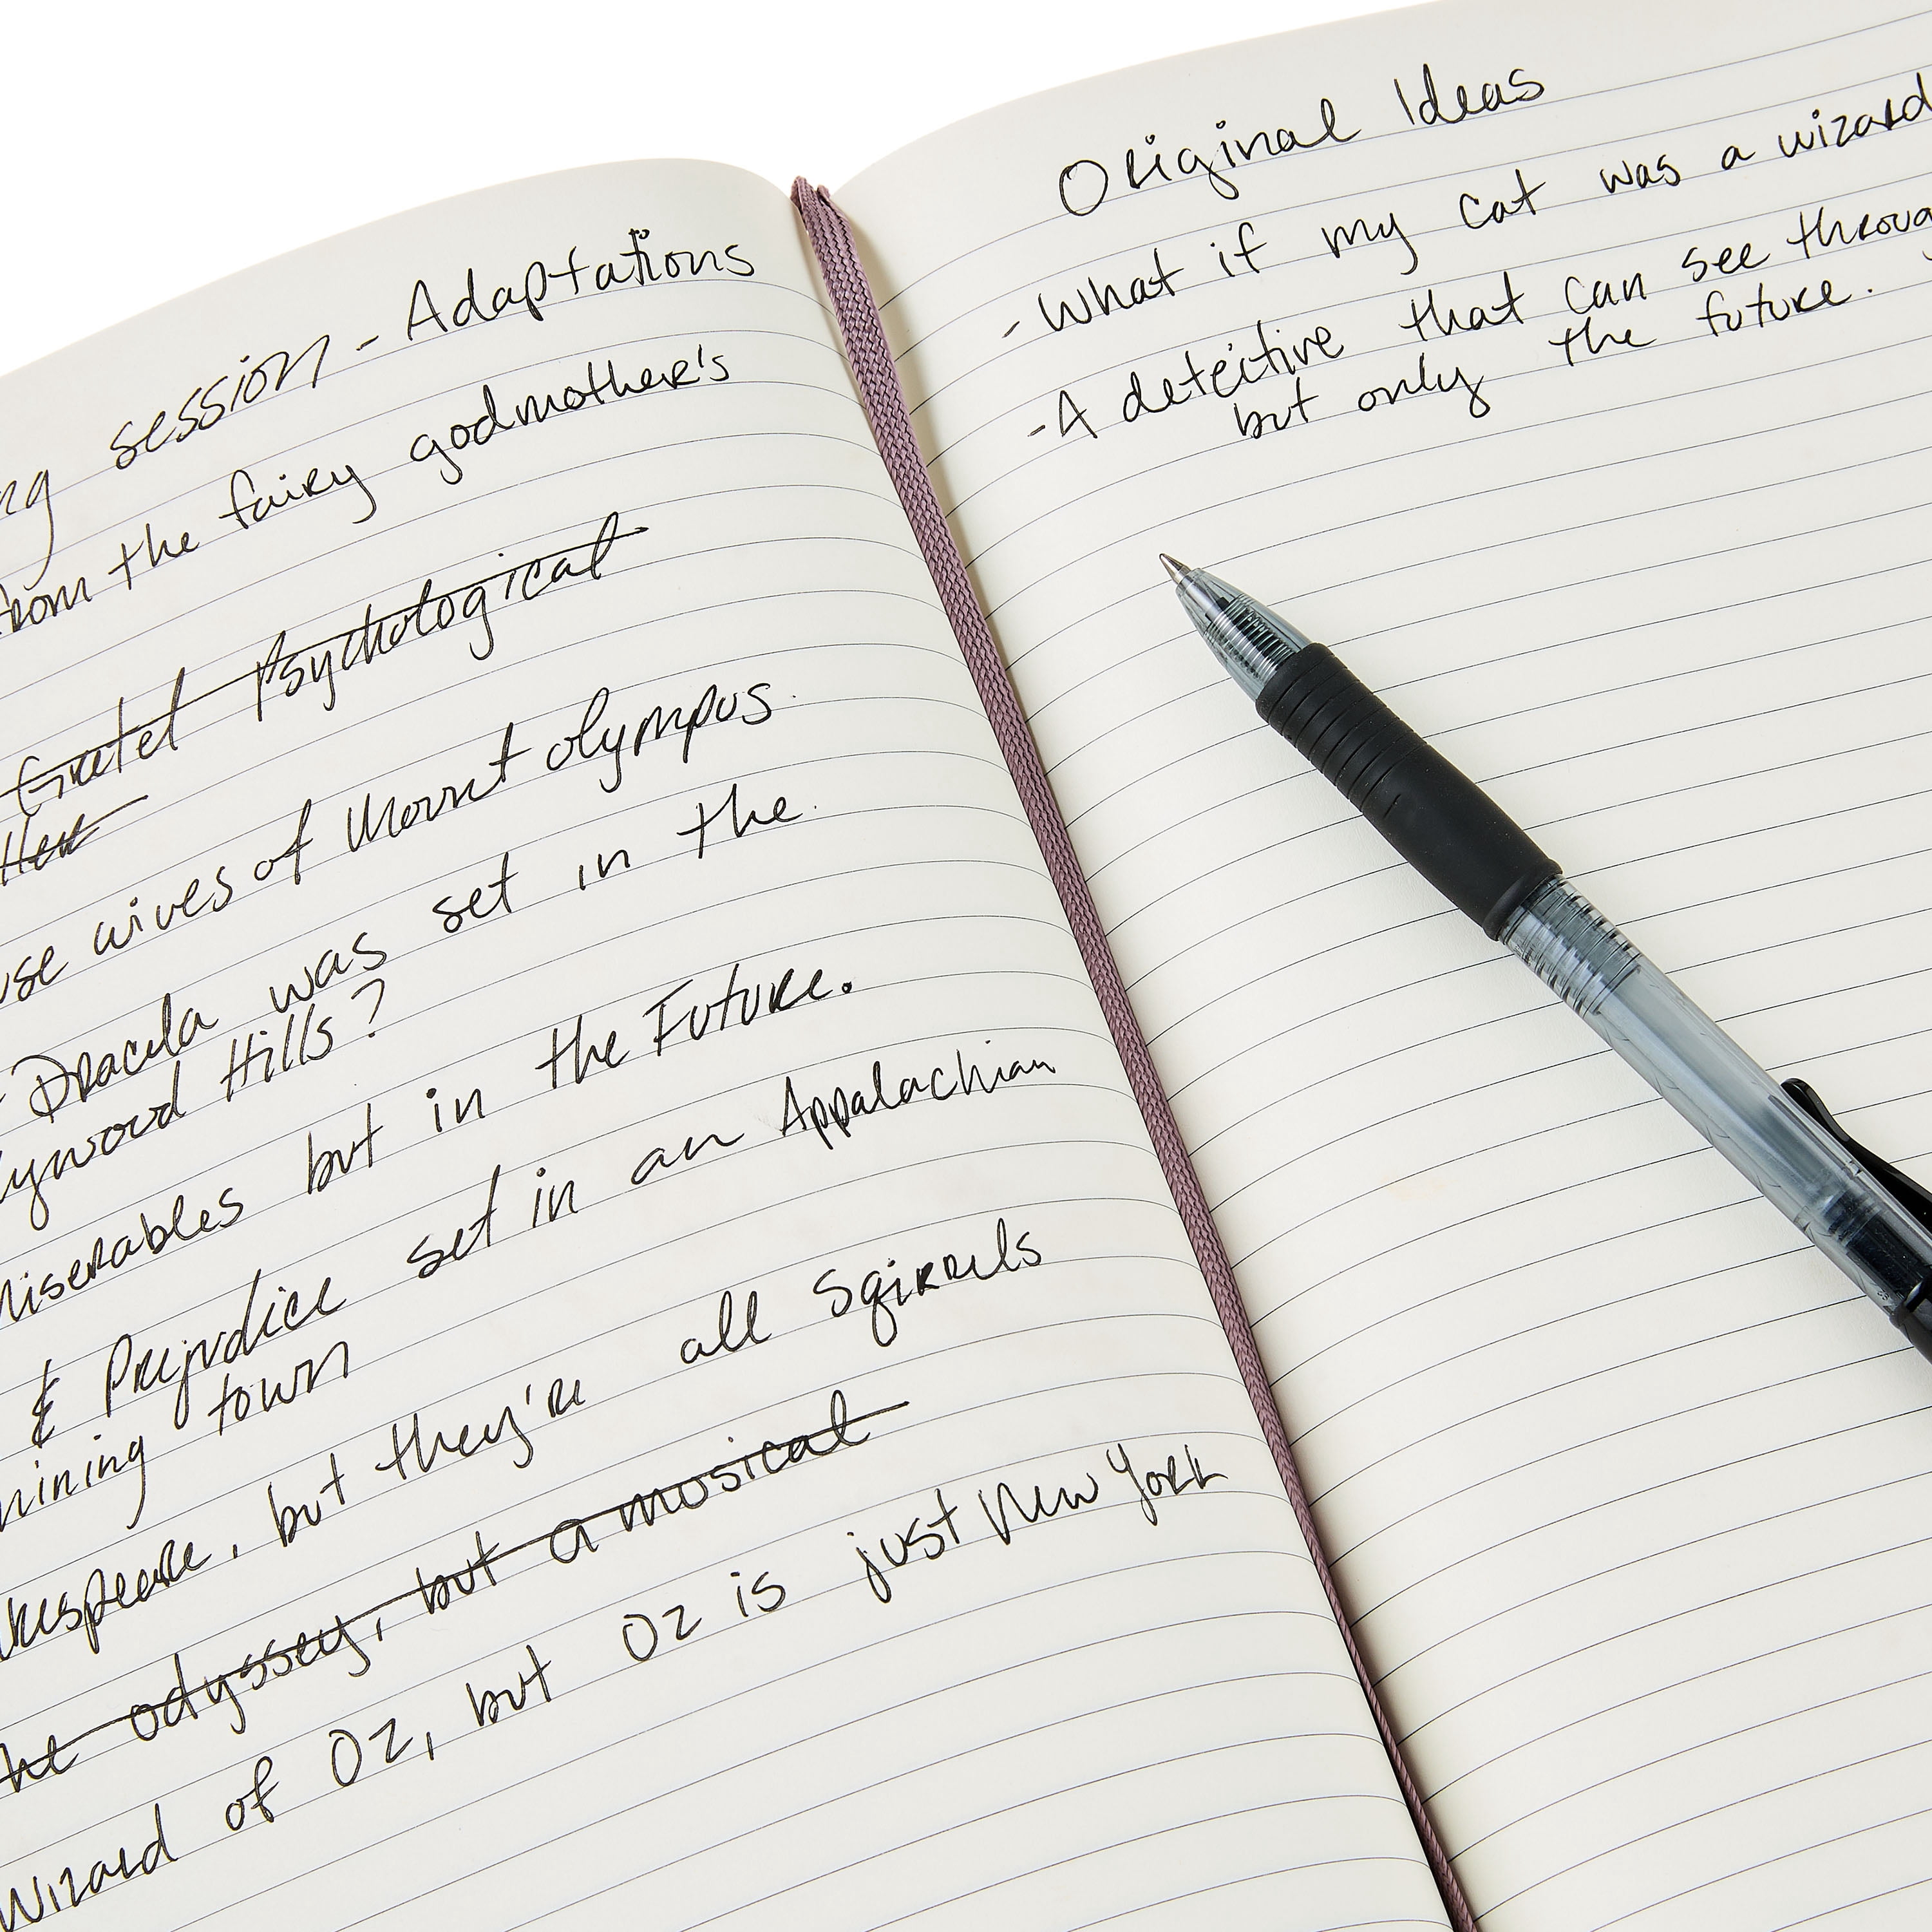 ng session - Adaptations
from the fairy godmother's
Gretel Psychological
use wives of Mount olympus.
Dracula was set in the
lywood Hills?
Miserables but in the Future.
& Prejudice set in an Appalachian
mining town
kespeare, but they're all Sqirrels
he odyssey, but a musical
Wizard of Oz, but Oz is just New York
Original Ideas
- What if my cat was a wizard
- A detective that can see throug
but only the future.